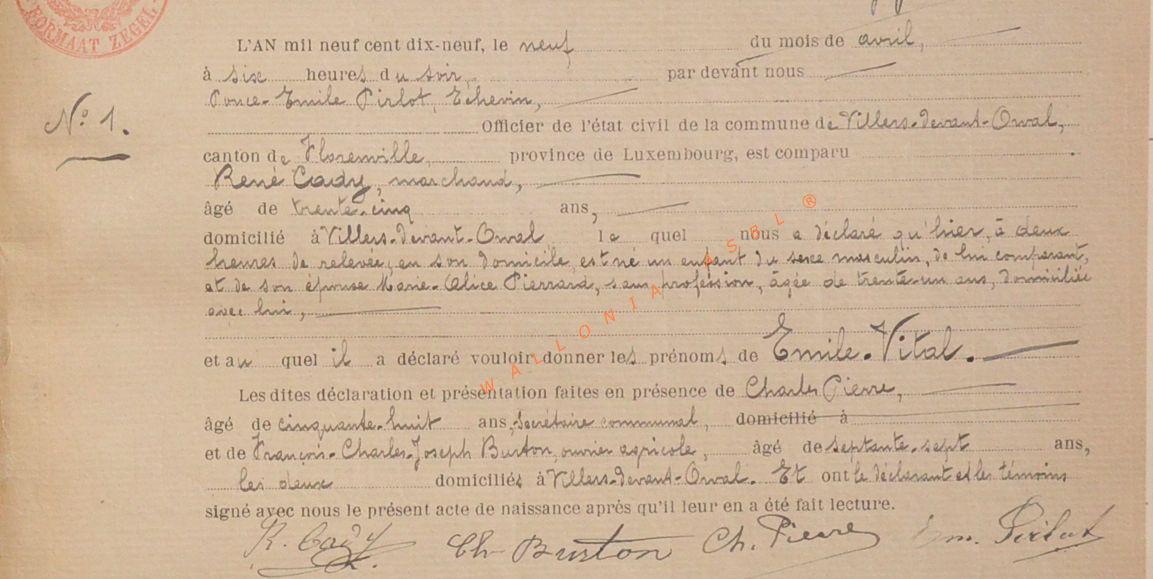 FORMAAT ZEGEL
L'AN mil neuf cent dix-neuf, le neuf du mois de avril,
à six heures du soir, par devant nous
Ponce-Emile Pirlot, Echevin,
N° 1.
Officier de l'état civil de la commune de Villers-devant-Orval,
canton de Florenville, province de Luxembourg, est comparu
René Cady, marchand,
âgé de trente-cinq ans,
domicilié à Villers-devant-Orval le quel nous a déclaré qu'hier, à deux
heures de relevée, en son domicile, est né un enfant du sexe masculin, de lui comparant,
et de son épouse Marie-Alice Pierrard, sans profession, âgée de trente-un ans, domiciliée
avec lui,
et au quel il a déclaré vouloir donner les prénoms de Emile-Vital.
Les dites déclaration et présentation faites en présence de Charles Pierre,
âgé de cinquante-huit ans, secrétaire communal, domicilié à
et de François-Charles-Joseph Burton, ouvrier agricole, âgé de septante-sept ans,
les deux domiciliés à Villers-devant-Orval. Et ont le déclarant et les témoins
signé avec nous le présent acte de naissance après qu'il leur en a été fait lecture.
R. Cady Ch Burton Ch. Pierre Em. Pirlot
WALLONIA ASBL ®